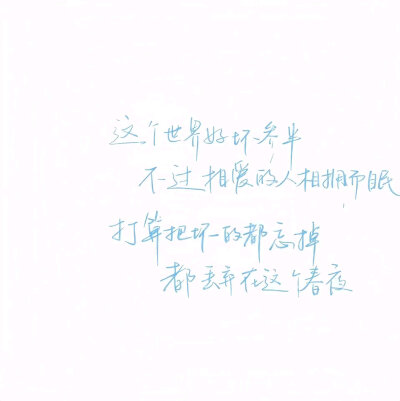 这个世界好坏参半
不过相爱的人相拥而眠
打算把坏的都忘掉
都丢弃在这个春夜